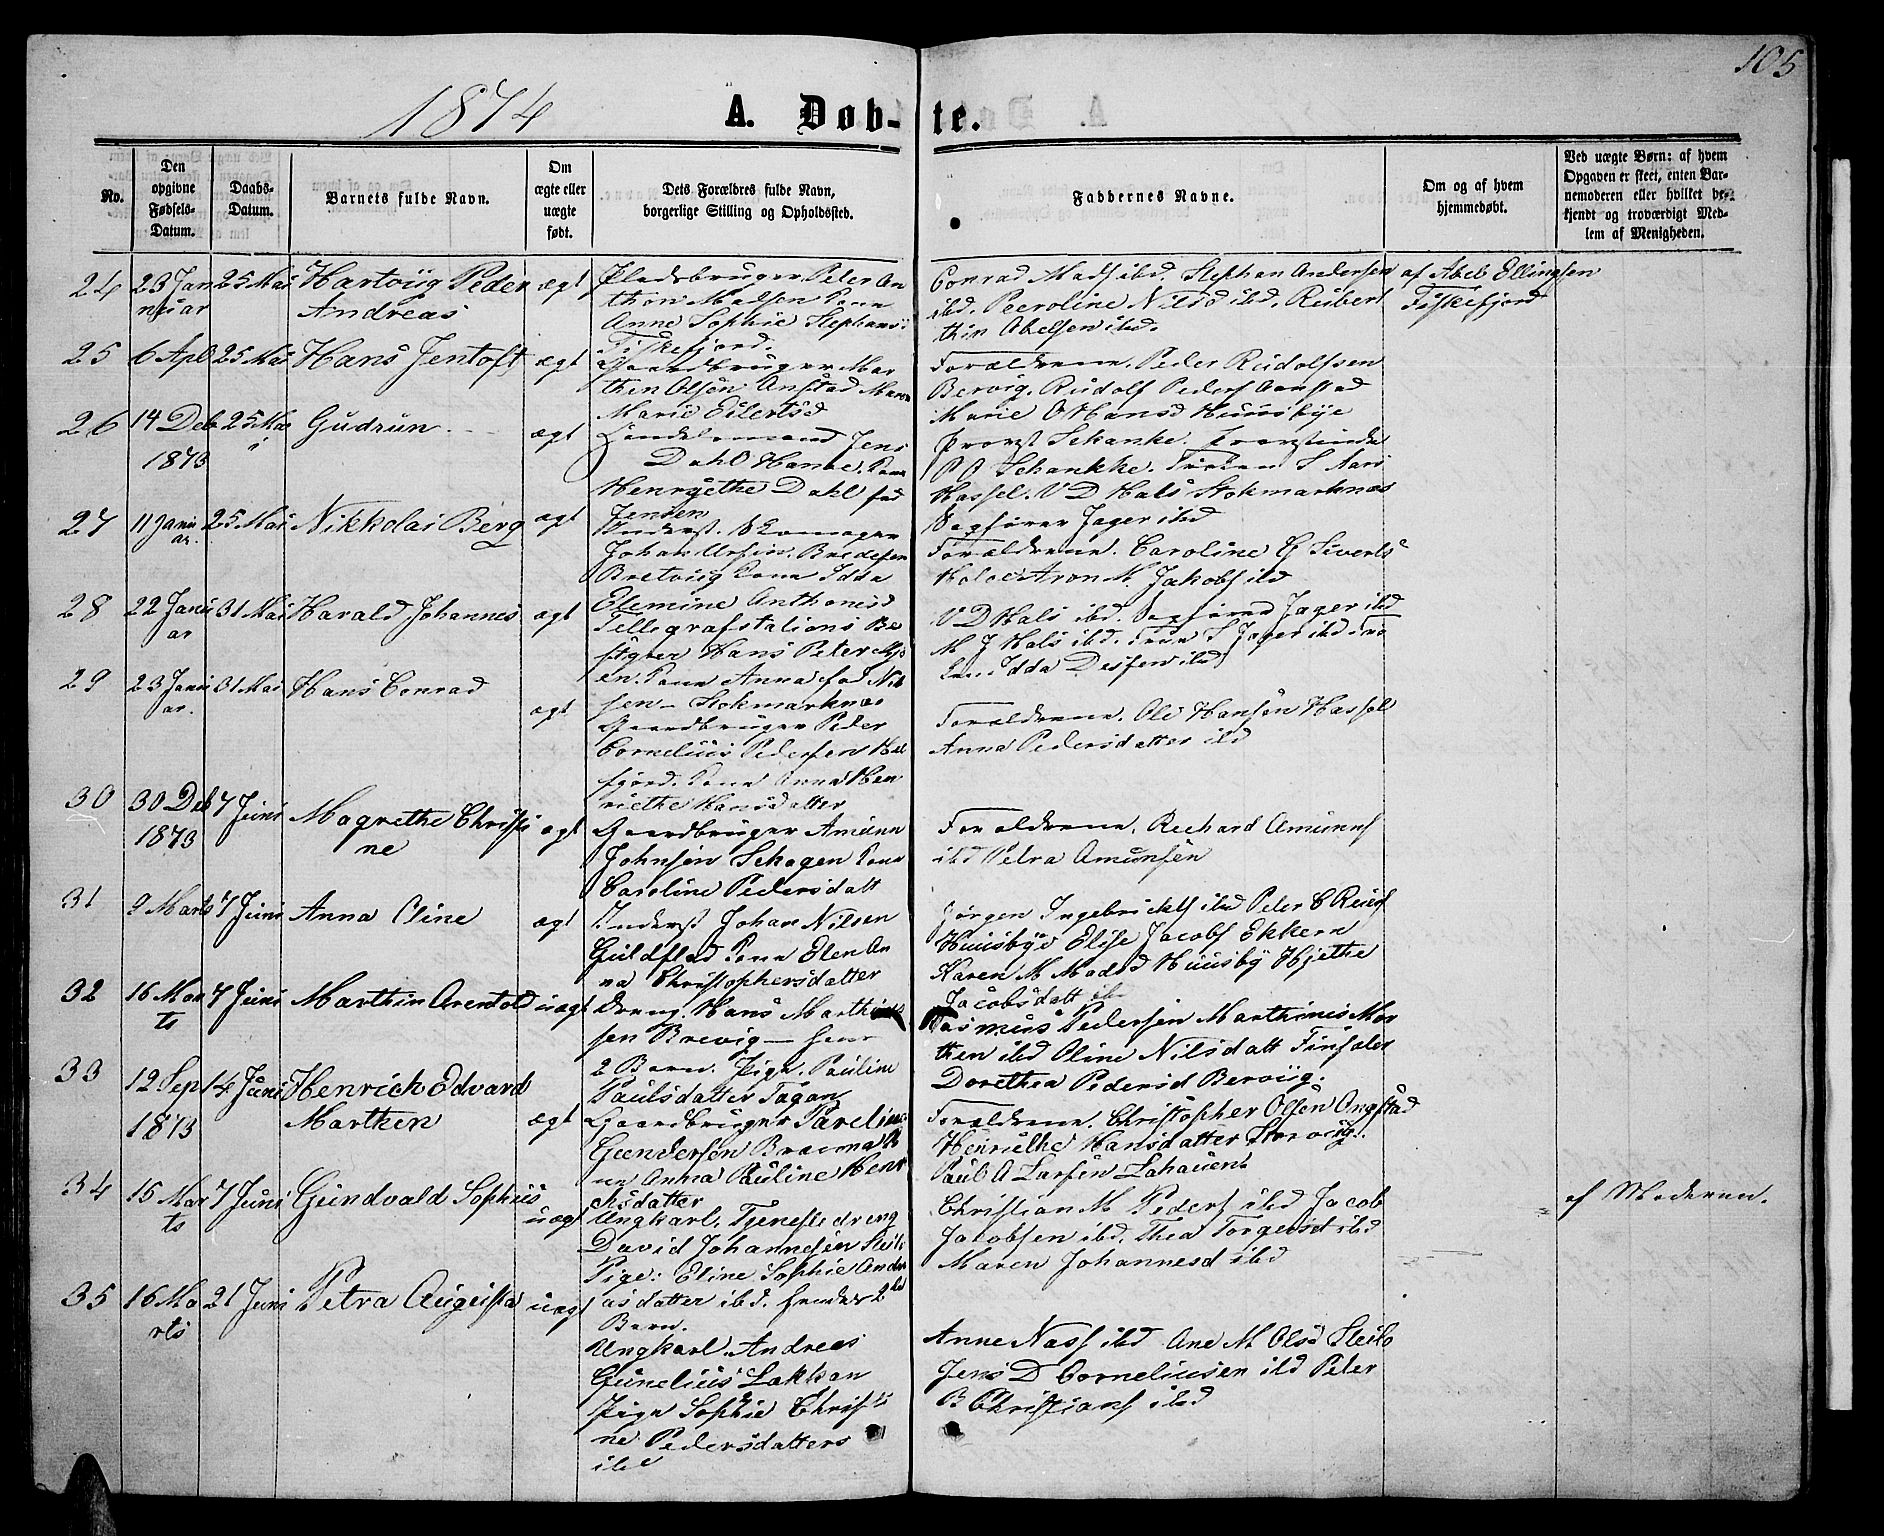 105
1874
A. Døb-te.
No.
Den opgivne Fødsels-Datum.
Daabs-Datum.
Barnets fulde Navn.
Om ægte eller uægte født.
Dets Forældres fulde Navn, borgerlige Stilling og Opholdssted.
Faddernes Navne.
Om og af hvem hjemmedøbt.
Ved uægte Børn: af hvem Opgaven er skeet, enten Barnemoderen eller hvilket bekjendt og troværdigt Medlem af Menigheden.
24 23 Jan 25 Mai Hartvig Peder ægt Pladsbruger Peter An
nuar Andreas thon Madsen Kone
Anne Sophie Stephans
Fiskefjord.
Conrad Mads ibd. Stephan Andersen
ibd. Peeroline Nilsd ibd. Rubert
thin Abelsen ibd.
af Abel Ellingsen
Fiskefjord
25 6 Apl 25 Mai Hans Jentoft ægt Gaardbruger Mar
thin Olsen Anstad Maren
Marie Eilertsd
Forældrene. Peder Rudolfsen
Bervig. Rudolf Peders Aanstad
Marie O Hansd Huusbye
26 14 Deb 25 Mai Gudrun ægt Handelsmand Jens
1873 Dahl Hanke Kone
Henrijethe Dahl fød
Jensen
Provst Schanke. Provstinde
P O Schankke. Frøken S Aars
Hassel. V D Hals Stokmarknæs
Sagfører Jager ibd
27 11 Janu 25 Mai Nikkolai Berg ægt Inderst. Skomager
ar. Johan Ursin. Bredesen
Bretvig Kone Idda
Elemine Anthonisd
Forældrene. Caroline G Siverts
Holoe Aron M. Jakobs ibd
28 22 Janu 31 Mai Harald Johannes ægt Tellegrafstations Be
ar styrer Hans Peter
en. Kone Anna fød Nil
sen - Stokmarknæs
V D Hals ibd. Sagfører Jager ibd
M J Hals ibd. Frue S Jager ibd Frø
ken Idda ibd
29 23 Janu 31 Mai Hans Conrad ægt Gaardbruger Peder
ar. Cornelius Pedersen Hel
fjord. Kone Anna Hen
riethe Hansdatter
Forældrene. Ole Hansen Hassel
Anna Pedersdatter ibd
30 30 Deb 7 Juni Magrethe Christi ægt Gaardbruger Amunn
1873 ne Johnsen Schagen Kone
Caroline Pedersdatt
Forældrene. Rechard Amunns
ibd Petra Amunsen
31 9 Marts 7 Juni Anna Oline ægt Inderst Johan Nilsen
Guldstad Kone Elen An
na Christophersdatter
Jørgen Ingebrickts ibd Peter C Reiers
Huusbye Elise Jacobs Ekkern
Karen M Madsd Huusby Hjethe
Jacobsdatt ibd
32 16 Mar 7 Juni Marthin Arentold uægt Dreng. Hans Marthinus
ts sen Brevig - hans
2 Barn. Pige. Pauline
Paulsdatter Fagan
Rasmus Pedersen Marthinis Mor
then ibd Oline Nilsdatt Finsæter
Dorethea Pedersd Bervig.
33 12 Sep 14 Juni Henrick Edvard
1873 Marthen ægt Gaardbruger Pareline
Gundersen
Anna Pauline Henr
iksdatter
Forældrene. Christopher Olsen Ongstad
Henriethe Hansdatter Storvig.
Paul A Larsen
34 15 Mar 7 Juni Gundvald Sophus uægt Ungkarl. Tjenestedreng
ts David Johannesen Slei
Pige: Eline Sophie Andr
asdatter ibd. hendes 2det
Barn.
Christian M Peders ibd Jacob
Jacobsen ibd. Thea Torgersd ibd
Maren Johannesd ibd
af Moderen.
35 16 Ma 21 Juni Petra Augusta uægt
rts Ungkarl. Andreas
Gunelius Lakkan
Pige Sophie Christi
ne Pedersdatters
ibd
Anne Nass ibd Ane M Olsd Sleilo
Jens D Corneliusen ibd Peter
B Christians ibd